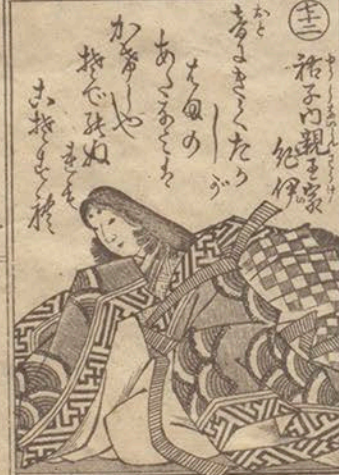 七十二
祐子内親王家
紀伊
音にきくたか
おと
しが
はまの
あたなみは
かけしや
袖のぬ
れも
こそすれ